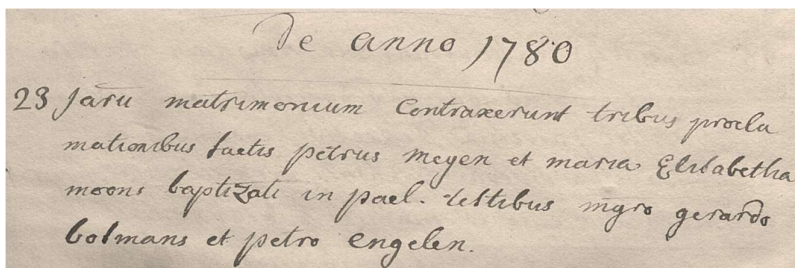 De anno 1780
23 Jarii matrimonium contraxerunt tribus procla
mationibus factis petrus meyen et maria Elisabetha
moons baptizati in pael. testibus mgro gerardo
bolmans et petro engelen.